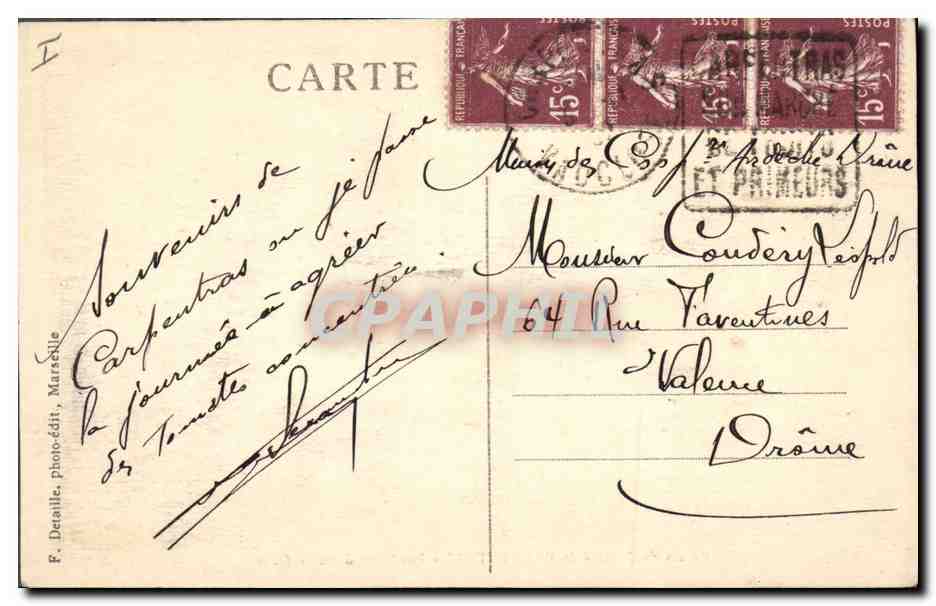 I
CARTE
POSTES
POSTES
POSTES
REPUBLIQUE FRANÇAISE
REPUBLIQUE FRANÇAISE
REPUBLIQUE FRANÇAISE
15c
15c
15c
ET PRIMEURS
Souvenirs de
Carpentras ou je passe
la journée à agréer
des Tomates concentrées.
Ardèche Drôme
Monsieur Coudéry Léopold
64 Rue Faventines
Valence
Drôme
F. Detaille, photo-édit., Marseille
CPAPHIL